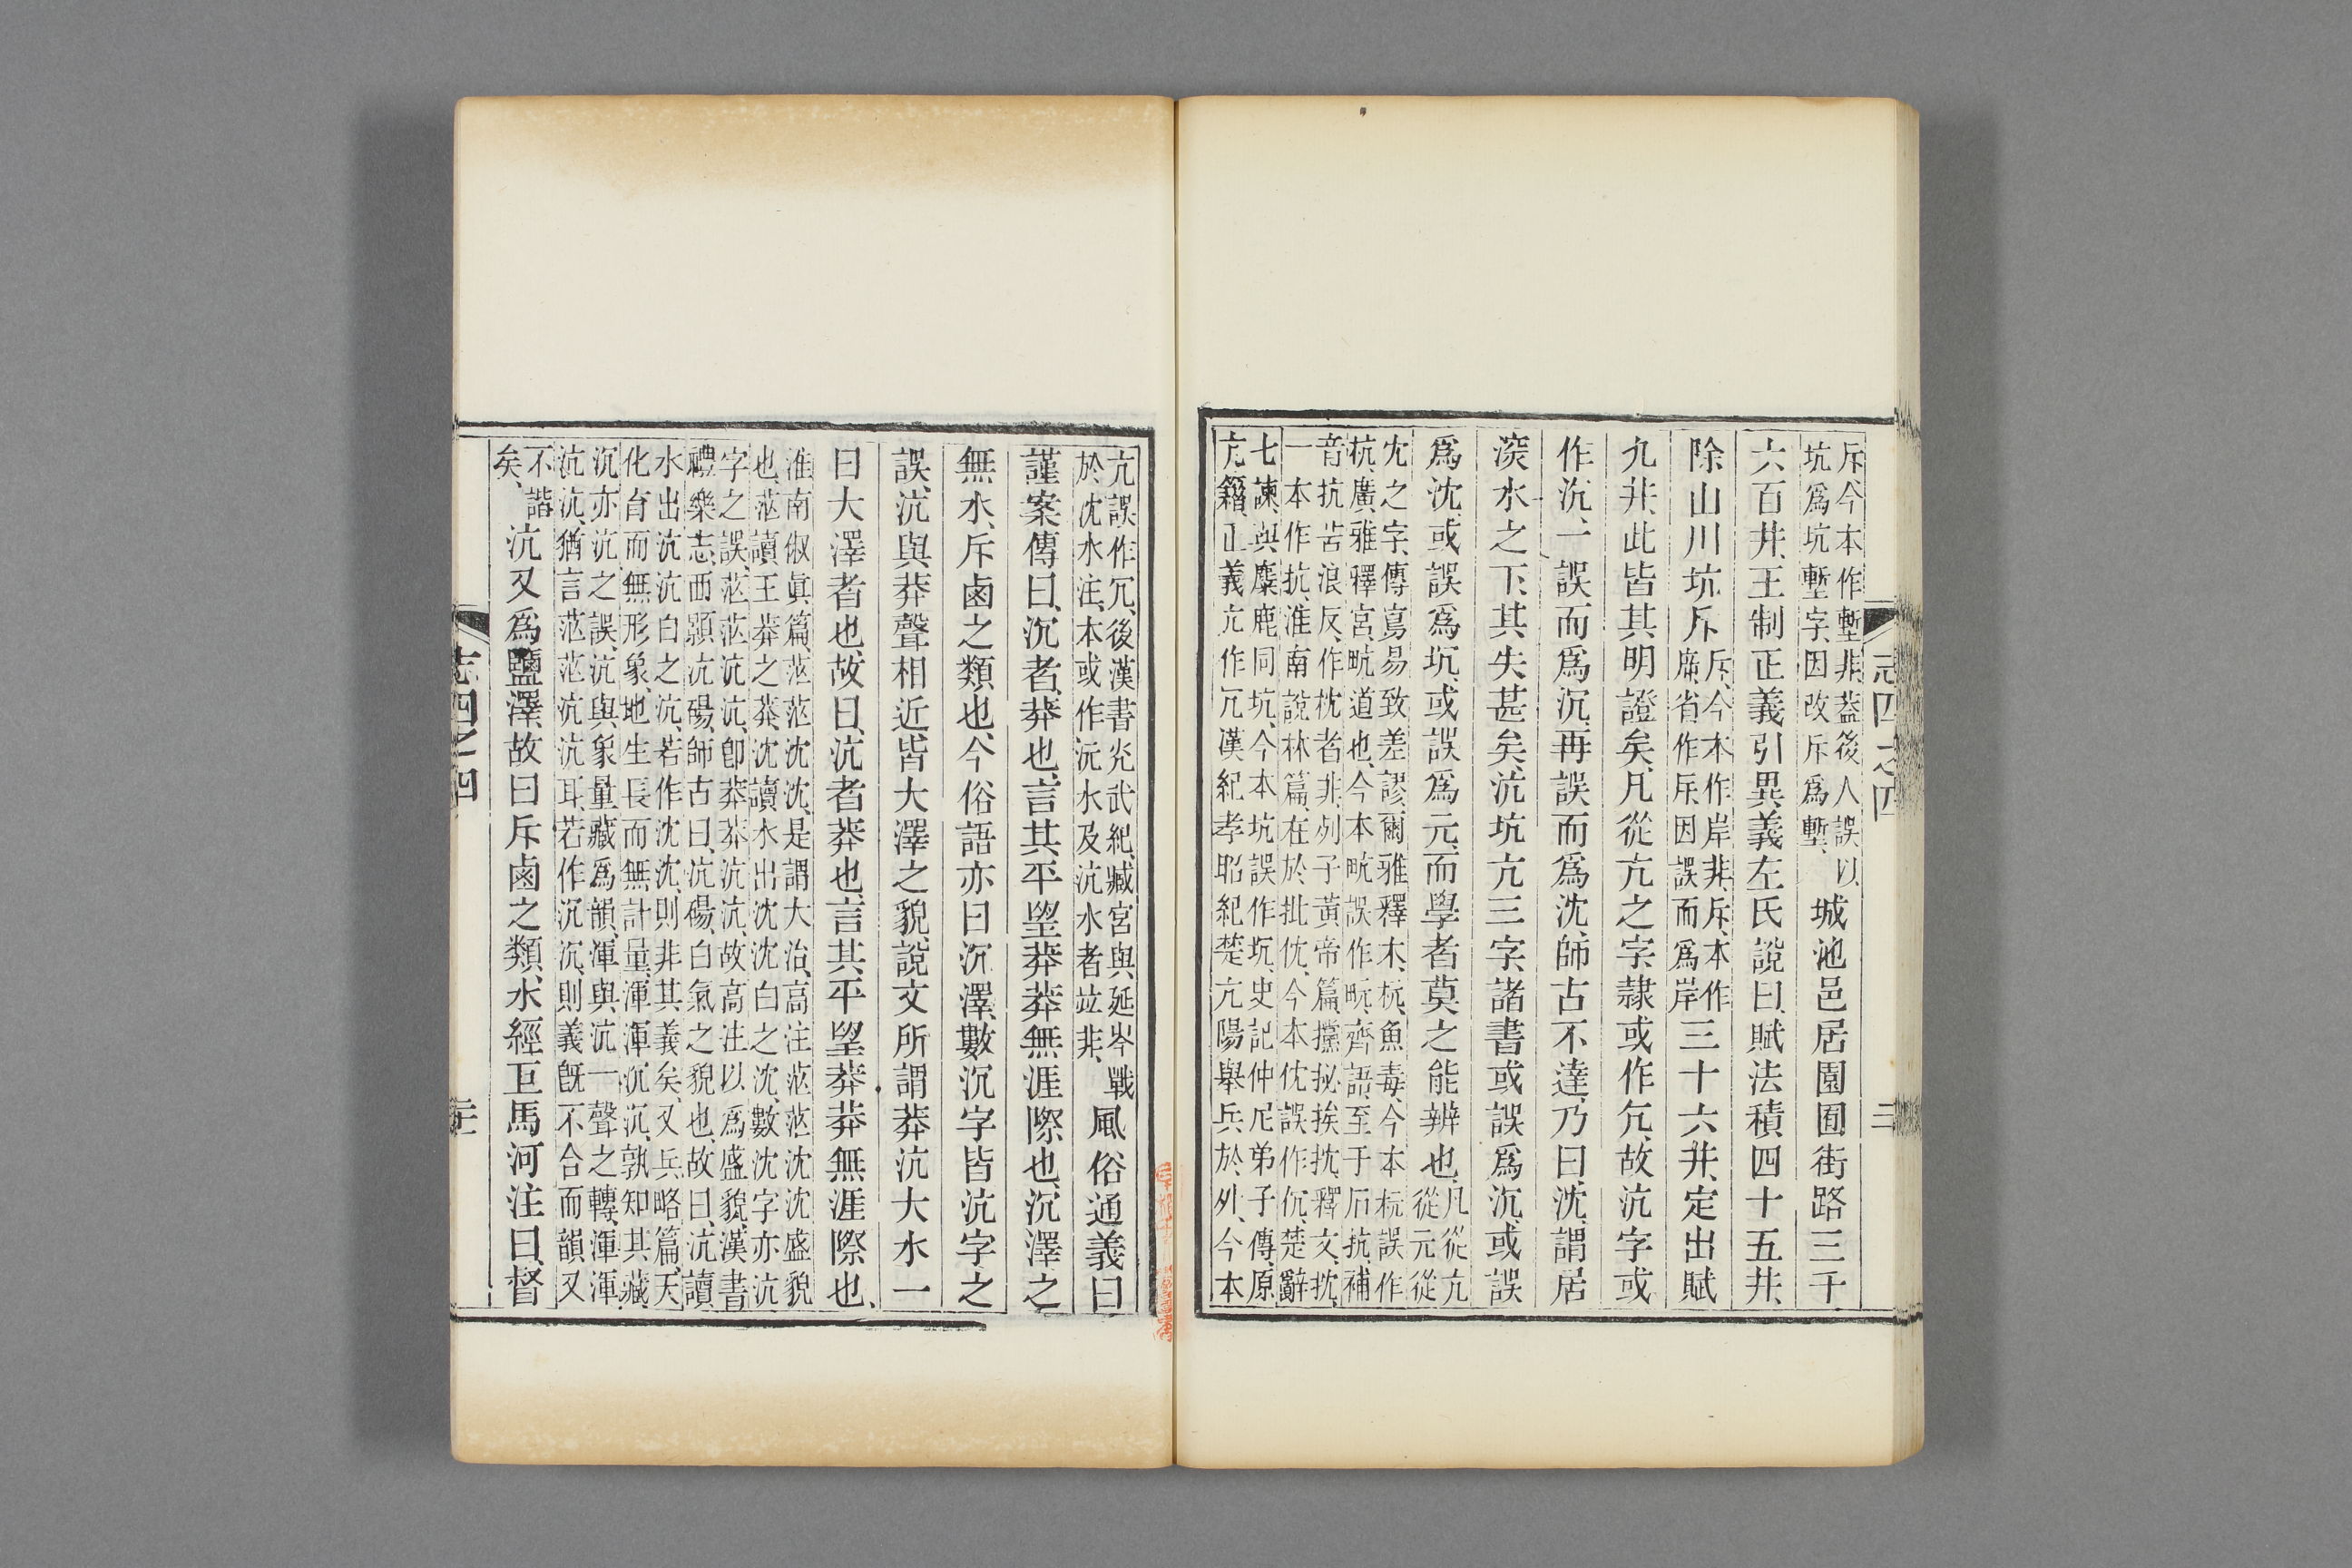 斥今本作塹非蓋後人誤以
坑爲坑塹字因改斥爲塹
城池邑居園囿街路三千
六百井王制正義引異義左氏說曰賦法積四十五井
除山川坑斥
斥今本作岸非斥本作
㡿省作斥因誤而爲岸
三十六井定出賦
九井此皆其明證矣凡從亢之字隷或作冗故沆字或
作沉一誤而爲沉再誤而爲沈師古不達乃曰沈謂居
深水之下其失甚矣沆坑亢三字諸書或誤爲沉或誤
爲沈或誤爲坑或誤爲元而學者莫之能辨也
凡從亢
從元從
冘之字傳寫易致差謬爾雅釋木杬魚毒今本杬誤作
杭廣雅釋宮畖道也今本畖誤作畖齊語至于石抗補
音抗苦浪反作枕者非列子黃帝篇攩㧙挨抌釋文抌
一本作抗淮南說林篇在於批伉今本伉誤作伔楚辭
七諫與麋鹿同坑今本坑誤作坈史記仲尼弟子傳原
亢籍正義亢作冗漢紀孝昭紀楚亢陽舉兵於外今本
志四之四
亢誤作冗後漢書光武紀臧宮與延岑戰
於沈水注本或作沅水及沆水者竝非
風俗通義曰
謹案傳曰沉者莽也言其平望莽莽無涯際也沉澤之
無水斥鹵之類也今俗語亦曰沉澤數沉字皆沆字之
誤沆與莽聲相近皆大澤之貌說文所謂莽沆大水一
曰大澤者也故曰沆者莽也言其平望莽莽無涯際也
淮南俶眞篇茫茫沈沈是謂大治高注茫茫沈沈盛貌
也茫讀王莽之莽沈讀水出沈沈白之沈數沈字亦沆
字之誤茫茫沆沆卽莽莽沆沆故高注以爲盛貌漢書
禮樂志西顥沆碭師古曰沆碭白氣之貌也故曰沆讀
水出沆沆白之沆若作沈沈則非其義矣又兵略篇天
化育而無形象地生長而無計量渾渾沉沉孰知其藏
沉亦沆之誤沆與象量藏爲韻渾與沆一聲之轉渾渾
沆沆猶言茫茫沆沆耳若作沉沉則義旣不合而韻又
不諧
矣
沆又爲鹽澤故曰斥鹵之類水經巨馬河注曰督
志四之四